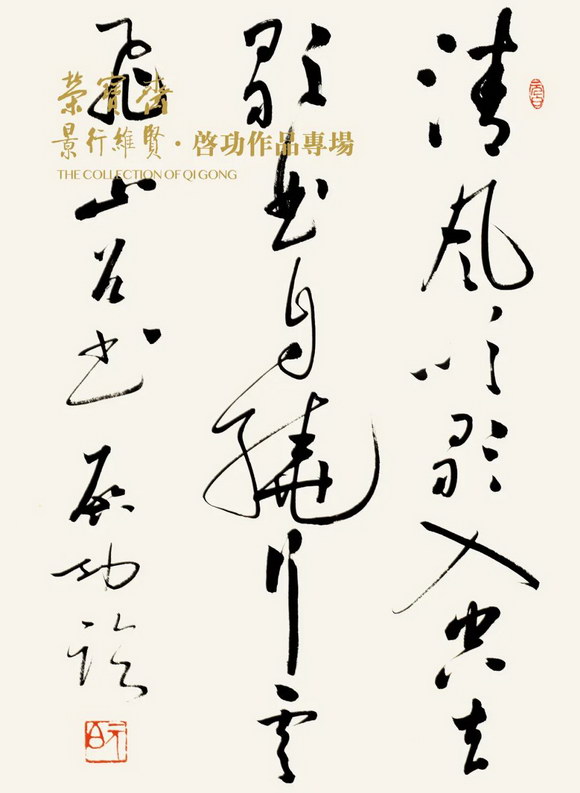 榮寶齋
景行維賢·啓功作品專場
THE COLLECTION OF QI GONG
清風吹歌入空去
歌曲自繞行雲
飛山谷書 啓功臨